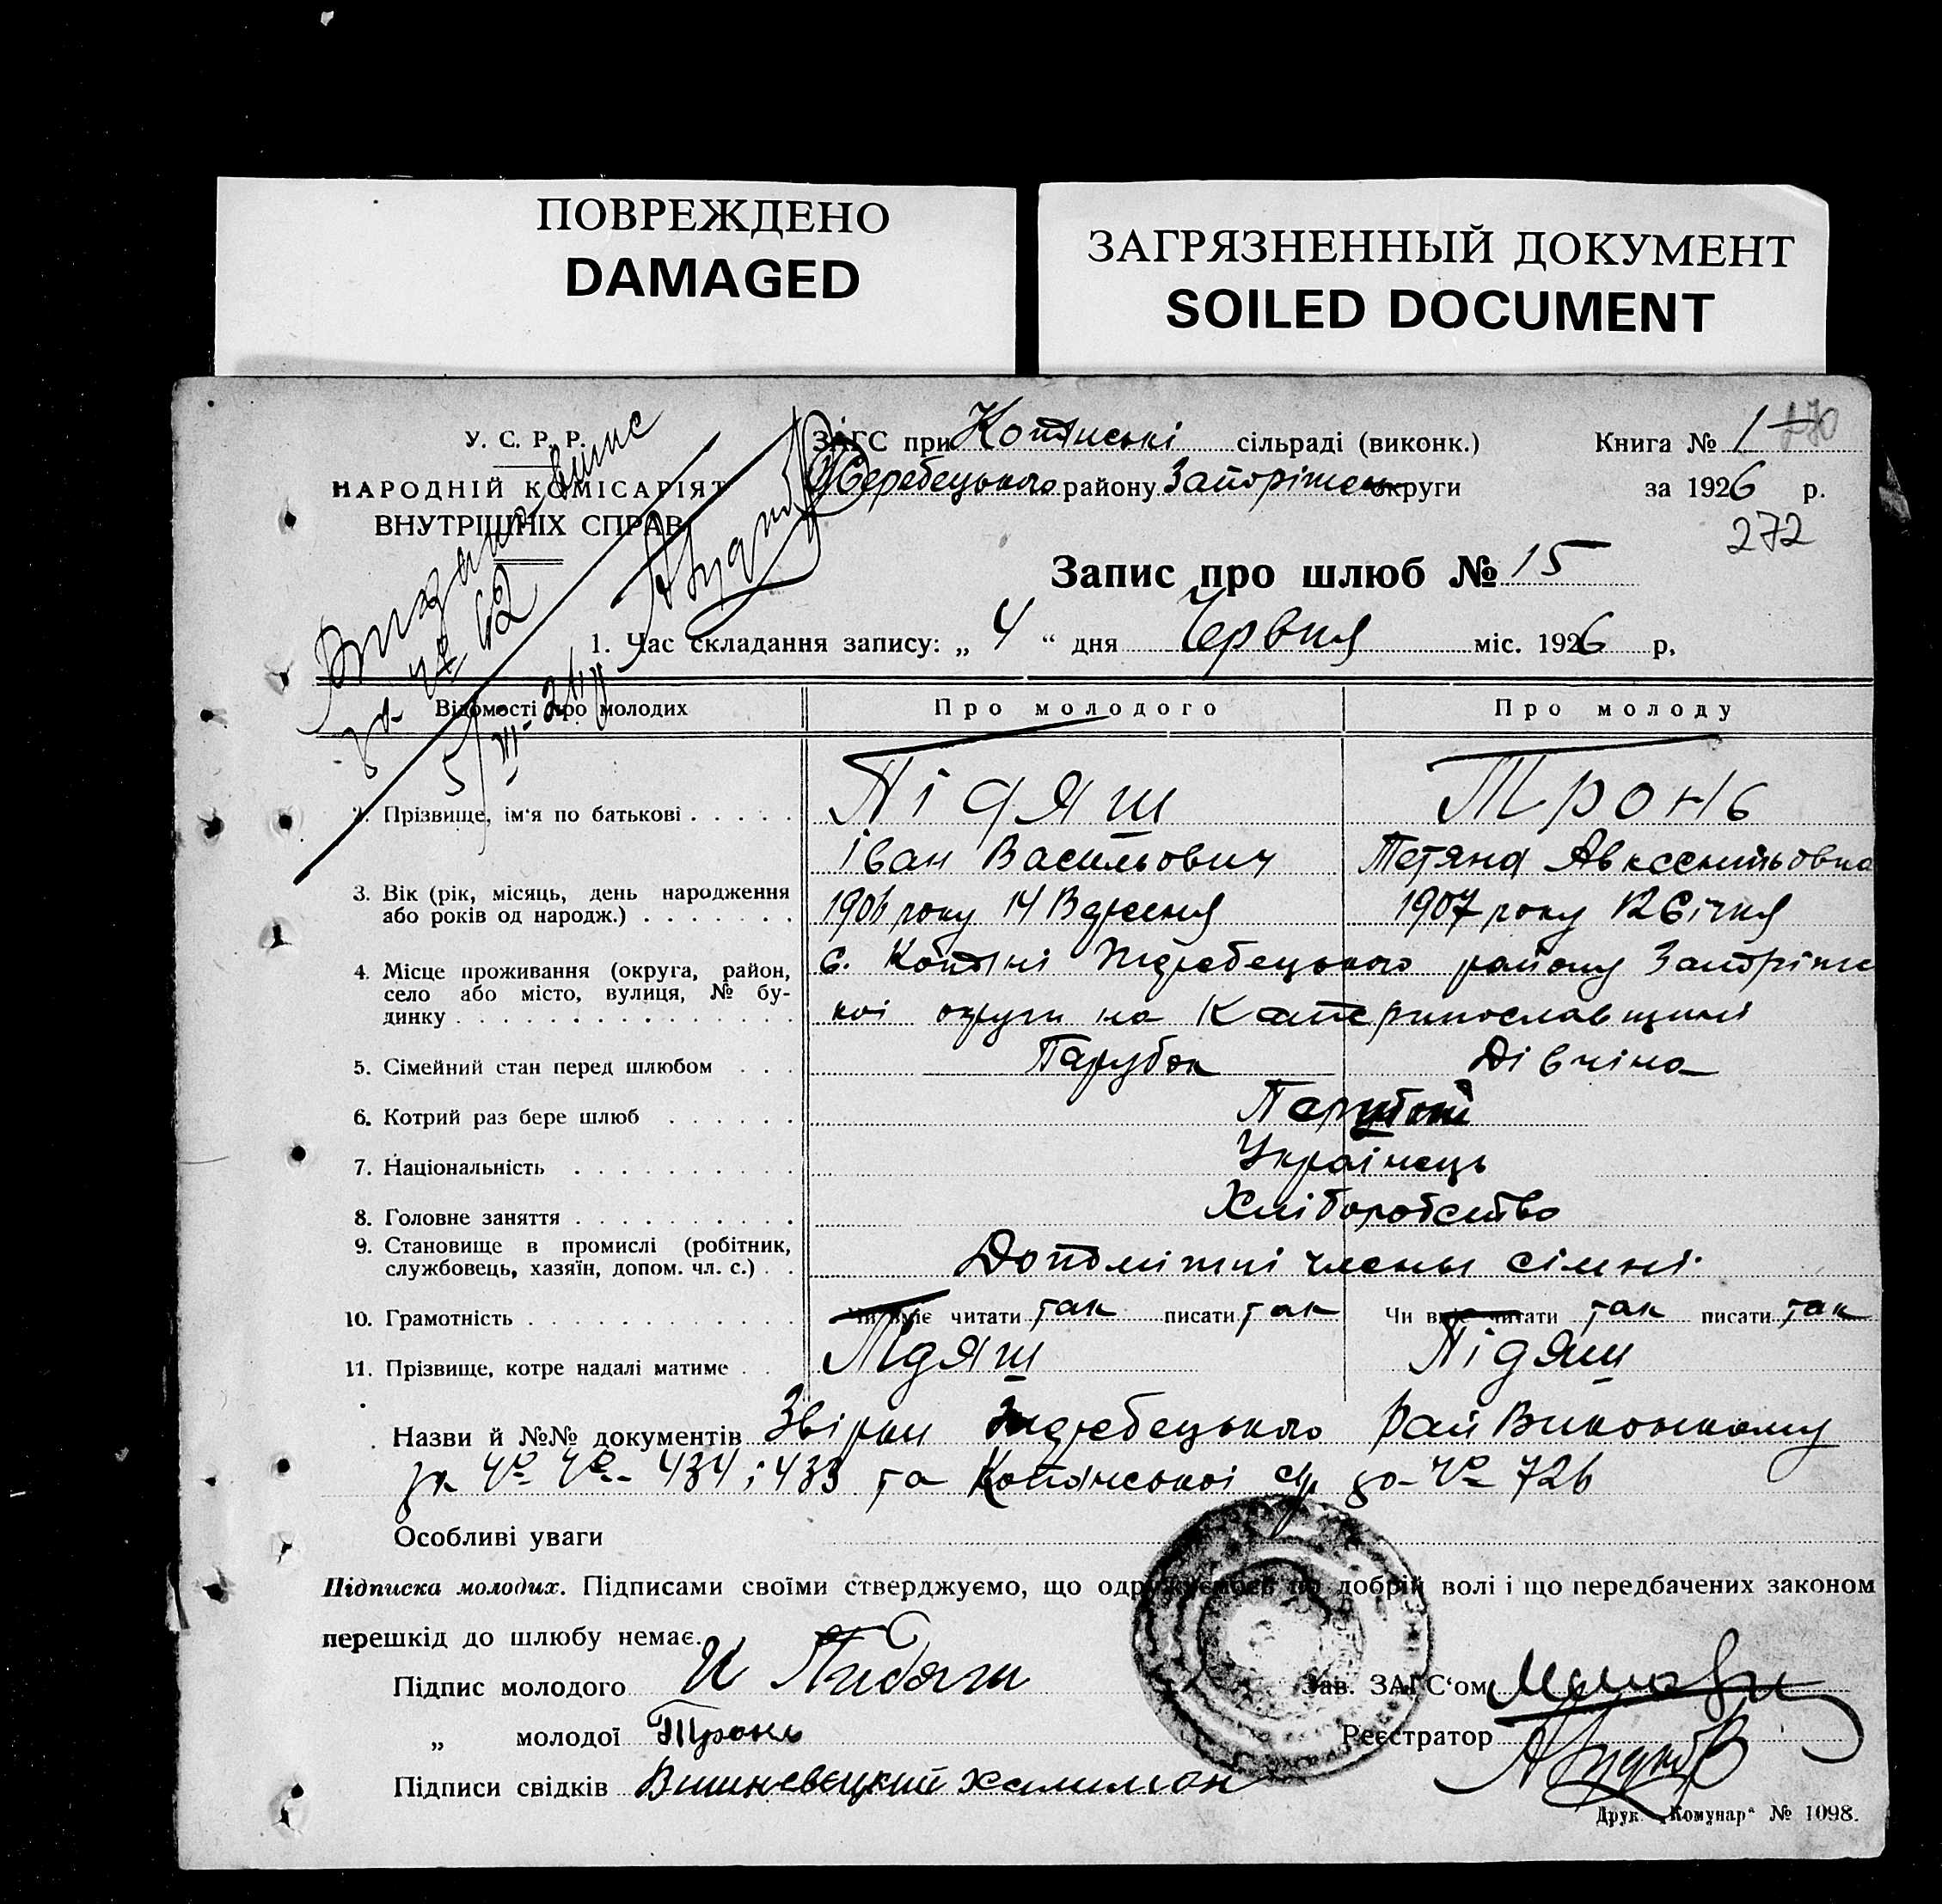 ПОВРЕЖДЕНО
DAMAGED
ЗАГРЯЗНЕННЫЙ ДОКУМЕНТ
SOILED DOCUMENT
У. С. Р. Р.
НАРОДНІЙ КОМІСАРІЯТ
ВНУТРІШНІХ СПРАВ
ЗАГС при Копанські сільраді (виконк.)
Жеребецького району Запоріжськ округи
Книга № 1
270
за 1926 р.
272
Запис про шлюб № 15
за № 62
5/VI-26
1. Час складання запису: „ 4 “ дня Червня міс. 1926 р.
Відомості про молодих Про молодого Про молоду
2. Прізвище, ім'я по батькові . . . . . Підяш Тронь
Іван Васильович Тетяна Авксентьовна
3. Вік (рік, місяць, день народження
або років од народж.) . . . . . . . 1906 року 14 Вересня 1907 року 12 Січня
4. Місце проживання (округа, район,
село або місто, вулиця, № бу-
динку . . . . . . . . . . . . . .
с. Копані Жеребецького району Запоріже
кої округи на Катеринославщині
5. Сімейний стан перед шлюбом . . . Парубок Дівчіна
6. Котрий раз бере шлюб . . . . . .
7. Національність . . . . . . . . . Українець
8. Головне заняття . . . . . . . . . Хліборобство
9. Становище в промислі (робітник,
службовець, хазяїн, допом. чл. с.) . . Допоміжні члены сімні
10. Грамотність . . . . . . . . . . . Чи вміє читати так писати так Чи вміє читати так писати так
11. Прізвище, котре надалі матиме . . Підяш Підяш
Назви й №№ документів Звірки Жеребецького РайВиконкому
за № № 434 і 433 та Копанської с/р за № 726
Особливі уваги
Підписка молодих. Підписами своїми стверджуємо, що одружуємось по добрій волі і що передбачених законом
перешкід до шлюбу немає.
Підпис молодого И Пидяш
„ молодої Тронь
Підписи свідків Вишневецкий Халимон
Зав. ЗАГС'ом
Реєстратор
Друк. „Комунар“ № 1098.